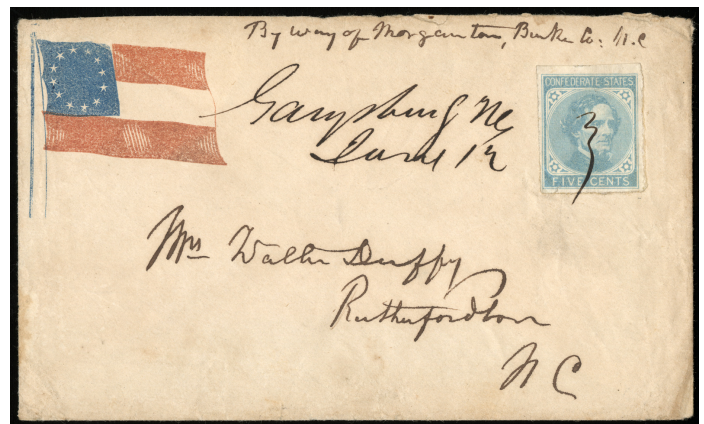 By way of Morganton, Burke Co: N.C
Garysburg NC
June 12
CONFEDERATE STATES
FIVE CENTS
Mrs Walter Duffy
Rutherfordton
N C